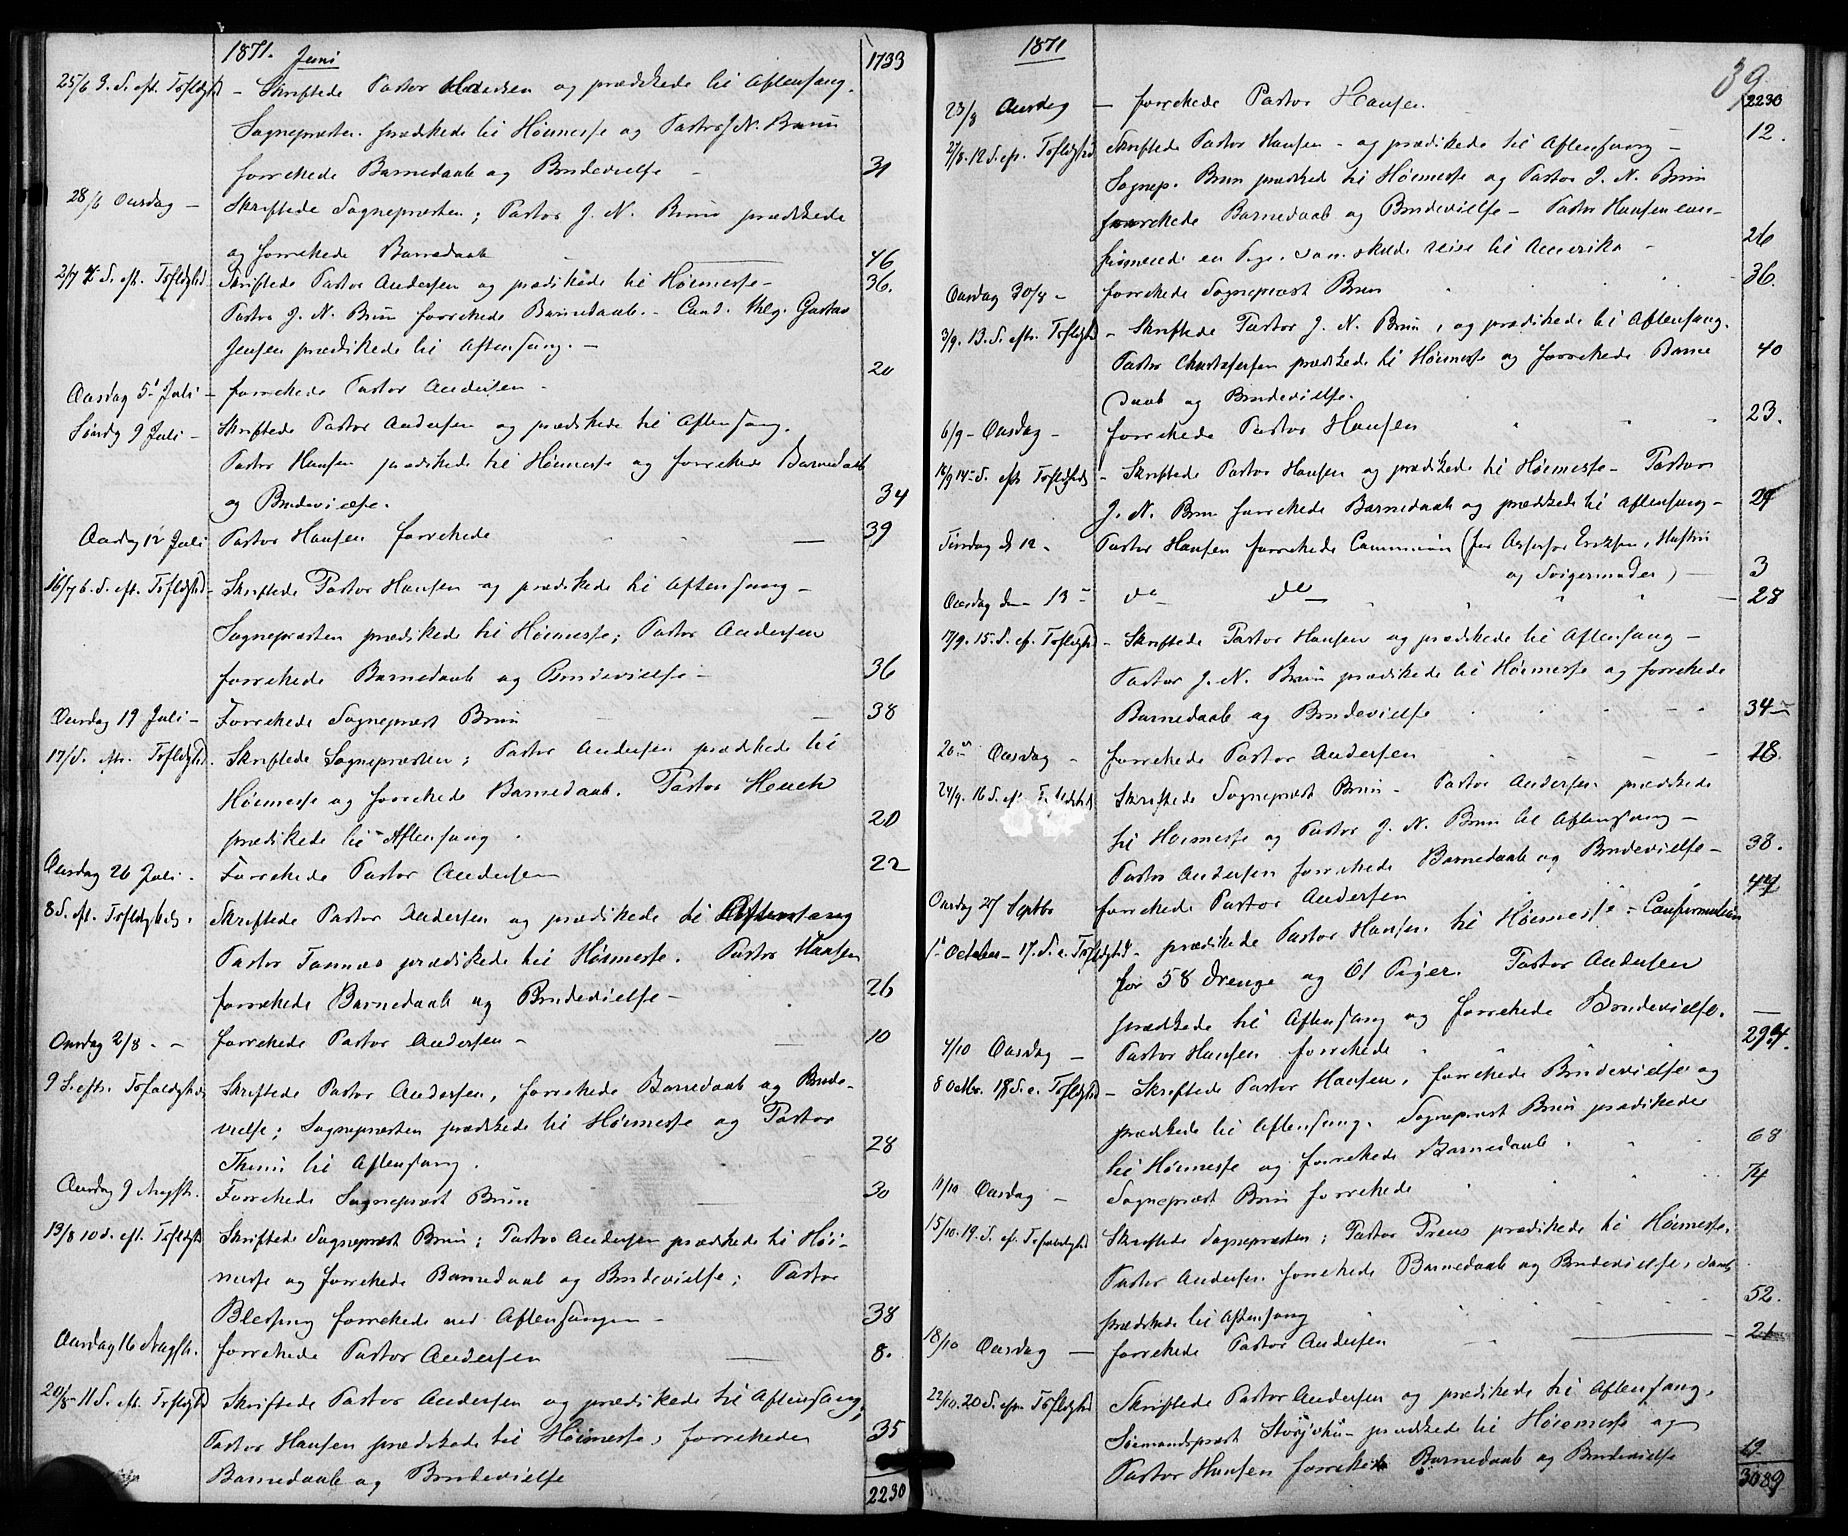 1871. Juni 1733
25/6 3. S. eft. Trfldghd - Skriftede Pastor Andersen og prædikede til Aftensang.
Sognepræsten prædikede til Høimesse og Pastor J. N. Brun
forrettede Barnedaab og Brudevielse - 31
28/6 Onsdag - Skriftede Sognepræsten; Pastor J. N. Brun prædikede
og forrettede Barnedaab 46
2/7 4 S. eft. Trfldghd. Skriftede Pastor Andersen og prædikede til Høimesse - 36.
Pastor J. N. Brun forrettede Barnedaab. - Cand. thlg. Gustav
Jensen prædikede til Aftensang. -
Onsdag 5' Juli - forrettede Pastor Andersen - 20
Søndg 9 Juli - Skriftede Pastor Andersen og prædikede til Aftensang.
Pastor Hansen prædikede til Høimesse og forrettede Barnedaab
og Brudevielse. 34
Onsdag 12 Juli Pastor Hansen forrettede - 39
16/7 6. S. eft. Trfldghd - Skriftede Pastor Hansen og prædikede til Aftensang -
Sognepræsten prædikede til Høimesse; Pastor Andersen
forrettede Barnedaab og Brudevielse - 36
Onsdag 19 Juli - Forrettede Sognepræst Brun - 38
17/S. eftr. Trfldghd. Skriftede Sognepræsten; Pastor Andersen prædikede til
Høimesse og forrettede Barnedaab. Pastor Heuch
prædikede til Aftensang. 20
Onsdag 26 Juli. Forrettede Pastor Andersen 22
8 S. eft. Trfldghds. Skriftede Pastor Andersen og prædikede til Aftensang
Pastor Tannæs prædikede til Høimesse. Pastor Hansen
forrettede Barnedaab og Brudevielse - 26
Onsdag 2/8 - - forrettede Pastor Andersen - 10
9 S. eftr. Trefoldigheds Skriftede Pastor Andersen, forrettede Barnedaab og Brude-
vielse; Sognepræsten prædikede til Høimesse og Pastor
til Aftensang. 28
Onsdag 9 Augstr. Forrettede Sognepræst Brun 30
13/8 10 S. eft. Trfldghd Skriftede Sognepræst Brun; Pastor Andersen prædikede til Høi-
messe og forrettede Barnedaab og Brudevielse; Pastor
Blessing forrettede ved Aftensangen - 38
Onsdag 16 Augstr. forrettede Pastor Andersen 8.
20/8 - 11 S. eft. Trfldghd Skriftede Pastor Andersen og prædikede til Aftensang;
Pastor Hansen prædikede til Høimesse, forrettede 35
Barnedaab og Brudevielse
2230
1871 39
2230
23/8 Onsdag - forrettede Pastor Hansen 12.
27/8. 12 S. eft. Trfldghd Skriftede Pastor Hansen - og prædikede til Aftensang -
Sognep. Brun prædiked til Høimesse og Pastor J. N. Brun
forrettede Barnedaab og Brudevielse - Pastor Hansen con-
firmerede en Pige, som skulde reise til Amerika - 26
Onsdag 30/8 - forrettede Sognepræst Brun 36.
3/9. 13. S. eftr. Trfldghd - Skriftede Pastor J. N. Brun, og prædikede til Aftensang.
Pastor Christofersen prædikede til Høimesse og forrettede Barne 40
daab og Brudevielse.
6/9 - Onsdag - forrettede Pastor Hansen 23.
14 S. eftr Trfldghds - Skriftede Pastor Hansen og prædikede til Høimesse - Pastor
J. N. Brun forrettede Barnedaab og prædikede til Aftensang - 24
Tirsdag d 12. Pastor Hansen forrettede Communion (for Eriksen, Hustru
og Svigermoder) - 3
Onsdag den 13 do do 28
17/9. 15. S. ef. Trfldghd - Skriftede Pastor Hansen og prædikede til Aftensang -
Pastor J. N. Brun prædikede til Høimesse og forrettede
Barnedaab og Brudevielse 34
20 Onsdag - forrettede Pastor Andersen 18.
24/9. 16 S. eft Trfldghd Skriftede Sognepræst Brun - Pastor Andersen prædikede
til Høimesse og Pastor J. N. Brun til Aftensang -
Pastor Andersen forrettede Barnedaab og Brudevielse - 38.
Onsdag 27 Septbr forrettede Pastor Andersen 44
1' October - 17. S. e. Trfldghd - prædikede Pastor Hansen til Høimesse - Confirmation
for 58 Drenge og 61 Piger. Pastor Andersen
prædikede til Aftensang og forrettede Brudevielse. -
4/10 Onsdag - Pastor Hansen forrettede 294.
8 Octbr. 18 S. e. Trfldghd - Skriftede Pastor Hansen, forrettede Brudevielse og
prædikede til Aftensang. Sognepræst Brun prædikede
til Høimesse og forrettede Barnedaab. 68
11/10 Onsdag - Sognepræst Brun forrettede 74
15/10. 19. S. ef. Trefoldighd Skriftede Sognepræsten; Pastor Preus prædikede til Høimesse,
Pastor Andersen forrettede Barnedaab og Brudevielse, samt
prædikede til Aftensang 52.
18/10 Onsdag - forrettede Pastor Andersen 21
22/10. 20 S. efter Trfldghd Skriftede Pastor Andersen og prædikede til Aftensang,
Sømandspræst Storjohan - prædikede til Høimesse og
Pastor Hansen forrettede Barnedaab og Brudevielse 19
3089